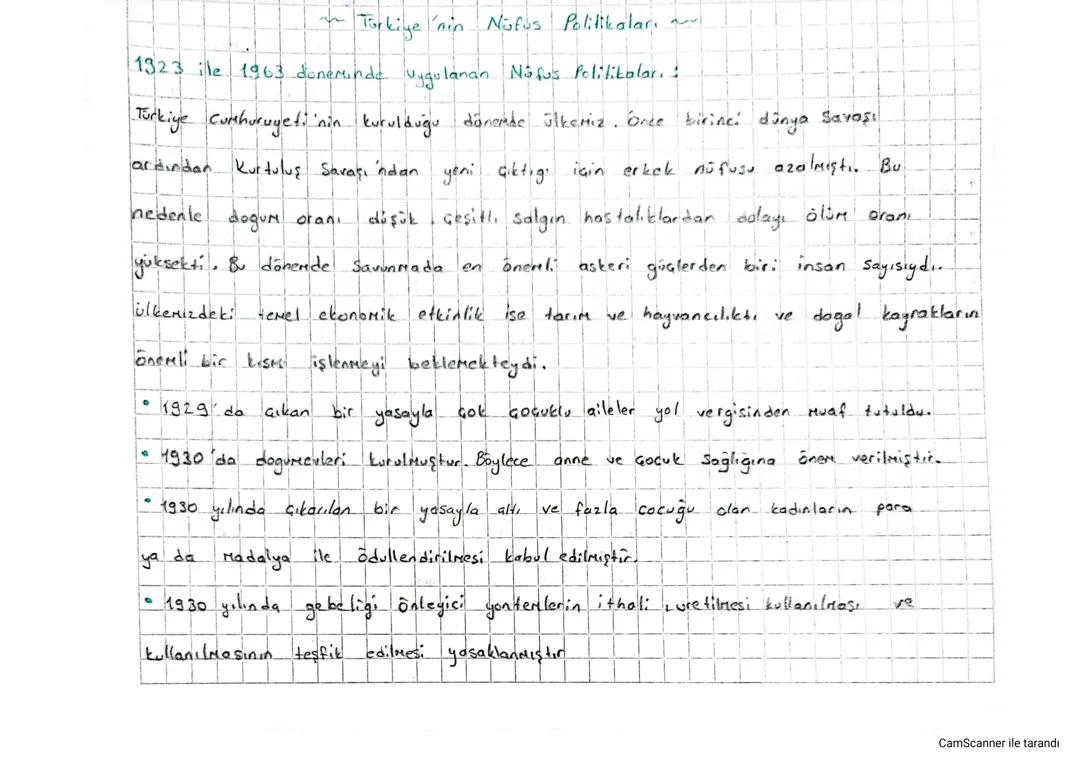 ~ Türkiye'nin Nüfus Politikaları ~
1923 ile 1963 döneminde uygulanan Nüfus Politikaları :
Türkiye Cumhuruyeti'nin kurulduğu dönemde ülkemiz. önce birinci dünya Savaşı
ardından Kurtuluş Savaşı'ndan yeni çıktıgı için erkek nüfusu azalmıştı. Bu
nedenle dogum oranı düşük, çeşitli salgın hastalıklardan dolayı ölüm oranı
yüksekti. Bu dönemde Savunmada en önemli askeri güçlerden biri insan Sayısıydı.
ülkemizdeki temel ekonomik etkinlik ise tarım ve hayvancılıktı ve dogal kaynakların
önemli bir kısmı işlenmeyi beklemekteydi.
• 1929'da çıkan bir yasayla çok çocuklu aileler yol vergisinden muaf tutuldu.
• 1930'da dogumevleri kurulmuştur. Böylece anne ve çocuk Sağlığına önem verilmiştir.
• 1930 yılında çıkarılan bir yasayla altı ve fazla çocuğu olan kadınların para
ya da madalya ile ödüllendirilmesi kabul edilmiştir.
• 1930 yılında gebeliği önleyici yöntemlerin ithali, üretilmesi kullanılması ve
kullanılmasının teşfik edilmesi yasaklanmıştır
CamScanner ile tarandı